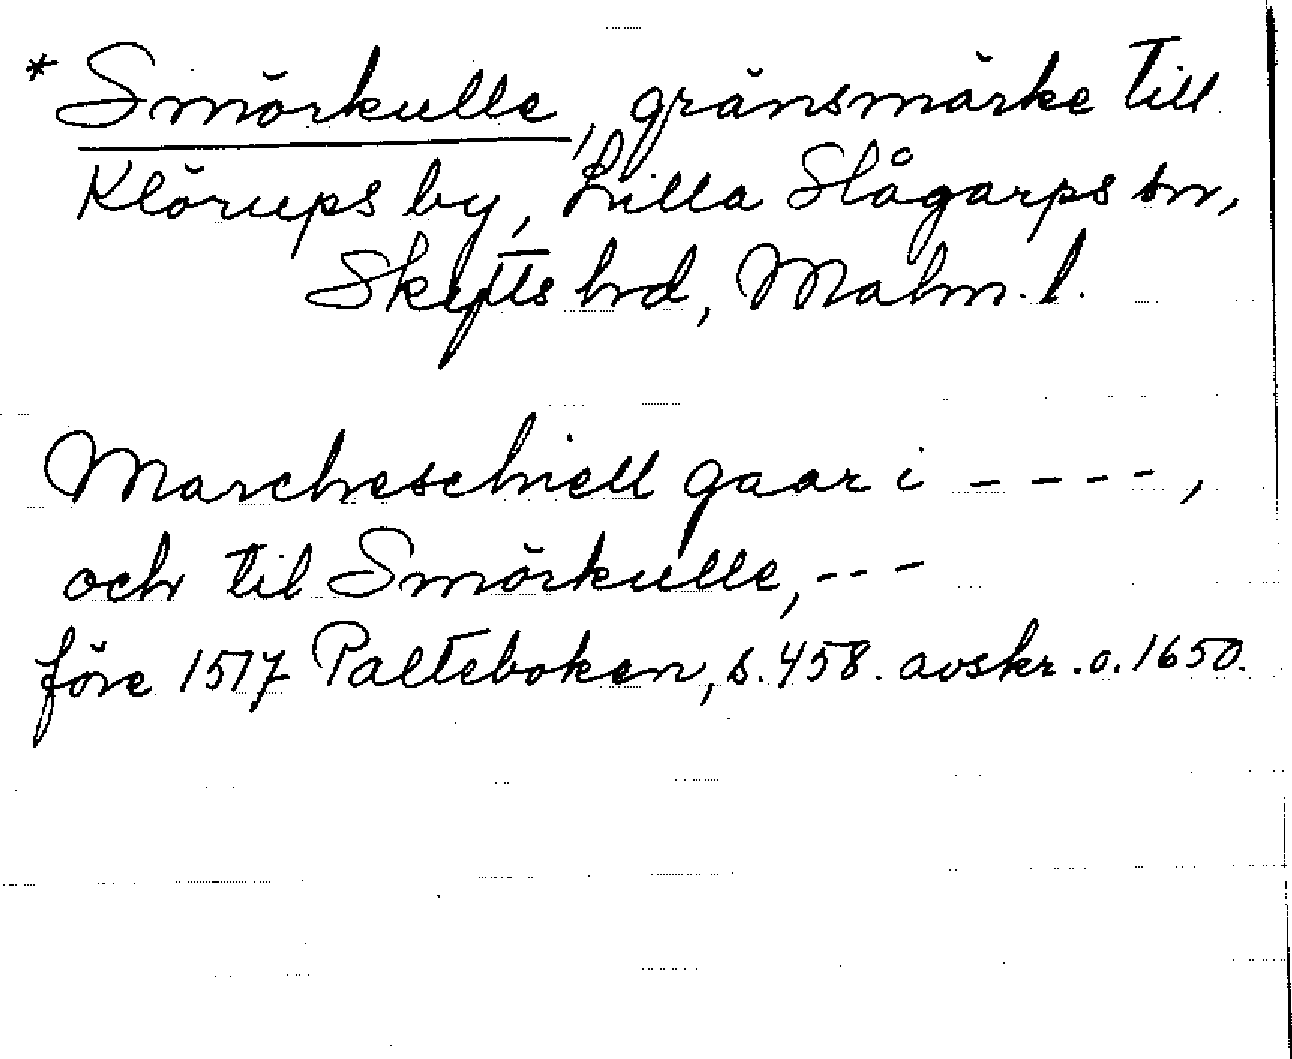 * Smörkulle, gränsmärke till
Klörups by, Lilla Slågarps sn,
Skytts hd, Malm. l.
Marcheschiell gaar i - - - -,
och til Smörkulle, - - -
före 1517 Palteboken, s. 458. avskr. o. 1650.